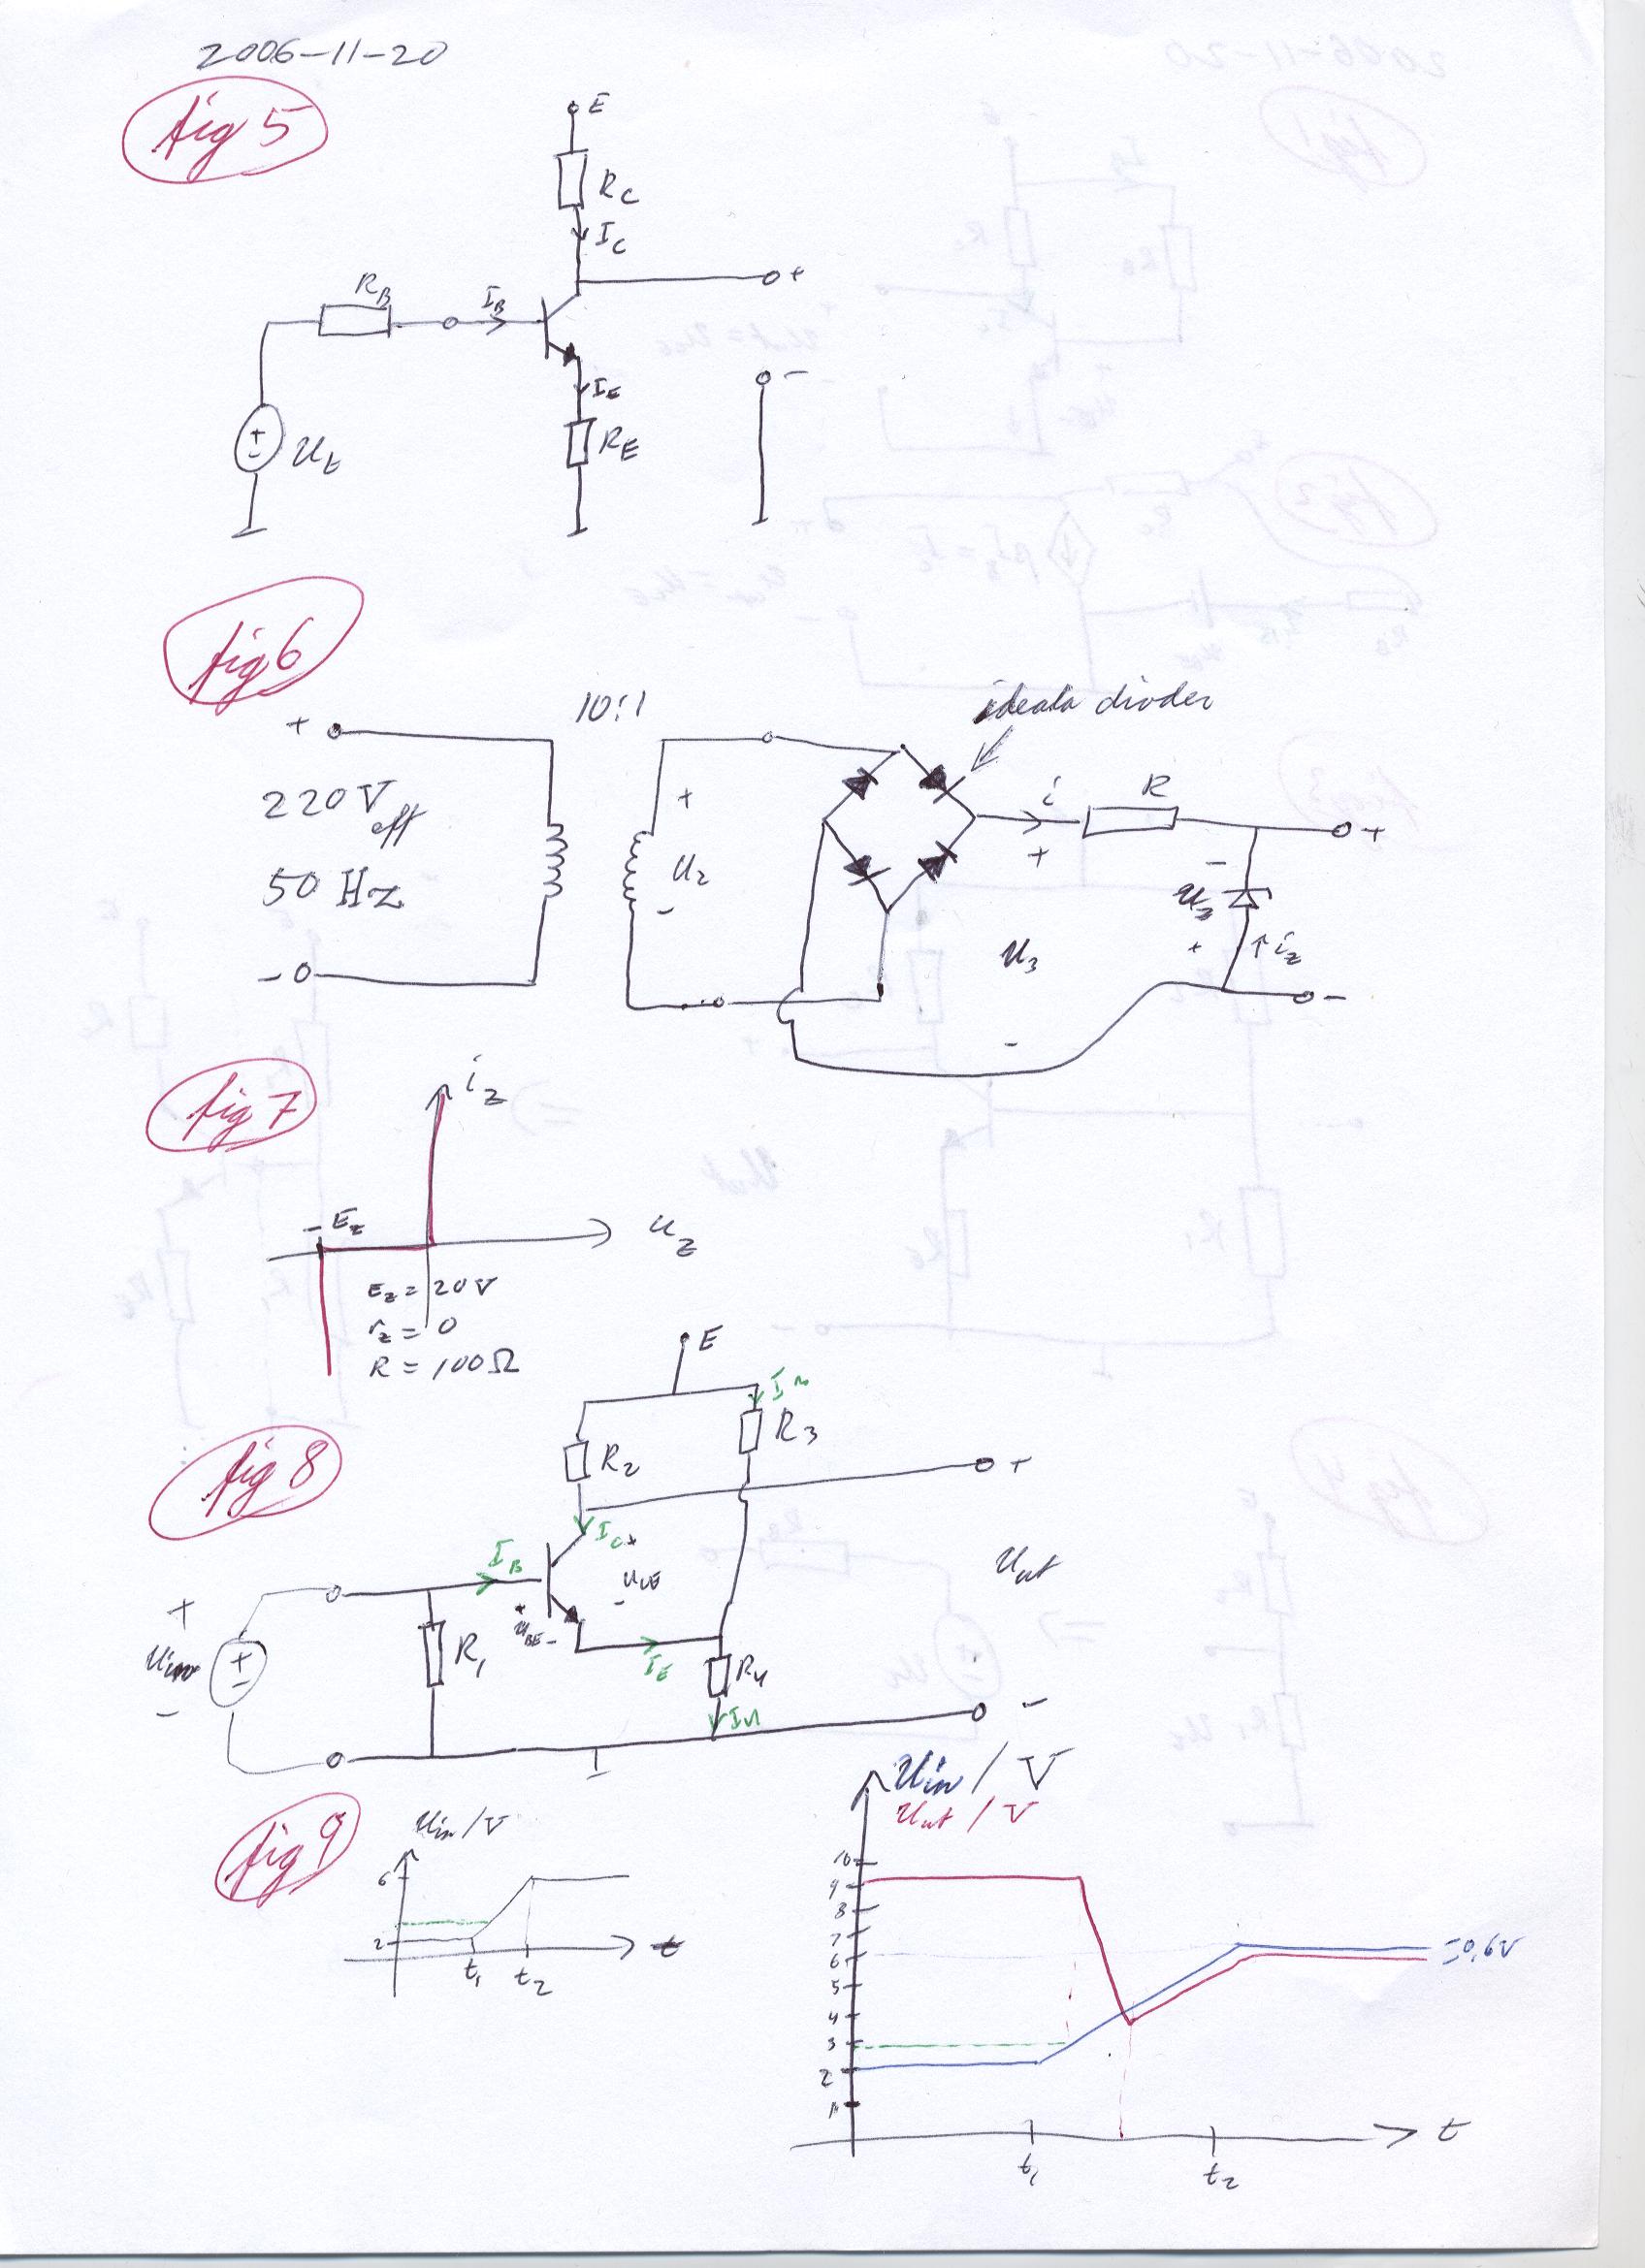 2006-11-20
fig 5
E
RC
IC
+
RB
IB
-
IE
RE
+
-
Ut
fig 6
10:1
ideala dioder
+
220 Veff
50 Hz
-
+
U2
-
i
R
+
+
-
Uz
+
↑iz
U3
-
-
fig 7
iz
-Ez
uz
Ez = 20V
rz = 0
R = 100Ω
fig 8
E
R2
R3
+
IB
IC
+
UCE
-
Uut
+
Uin
-
+
-
R1
+
UBE-
IE
R4
-
fig 9
Uin/V
6
2
t1
t2
t
Uin / V
Uut / V
10
9
8
7
6
5
4
3
2
1
0,6V
t1
t2
t